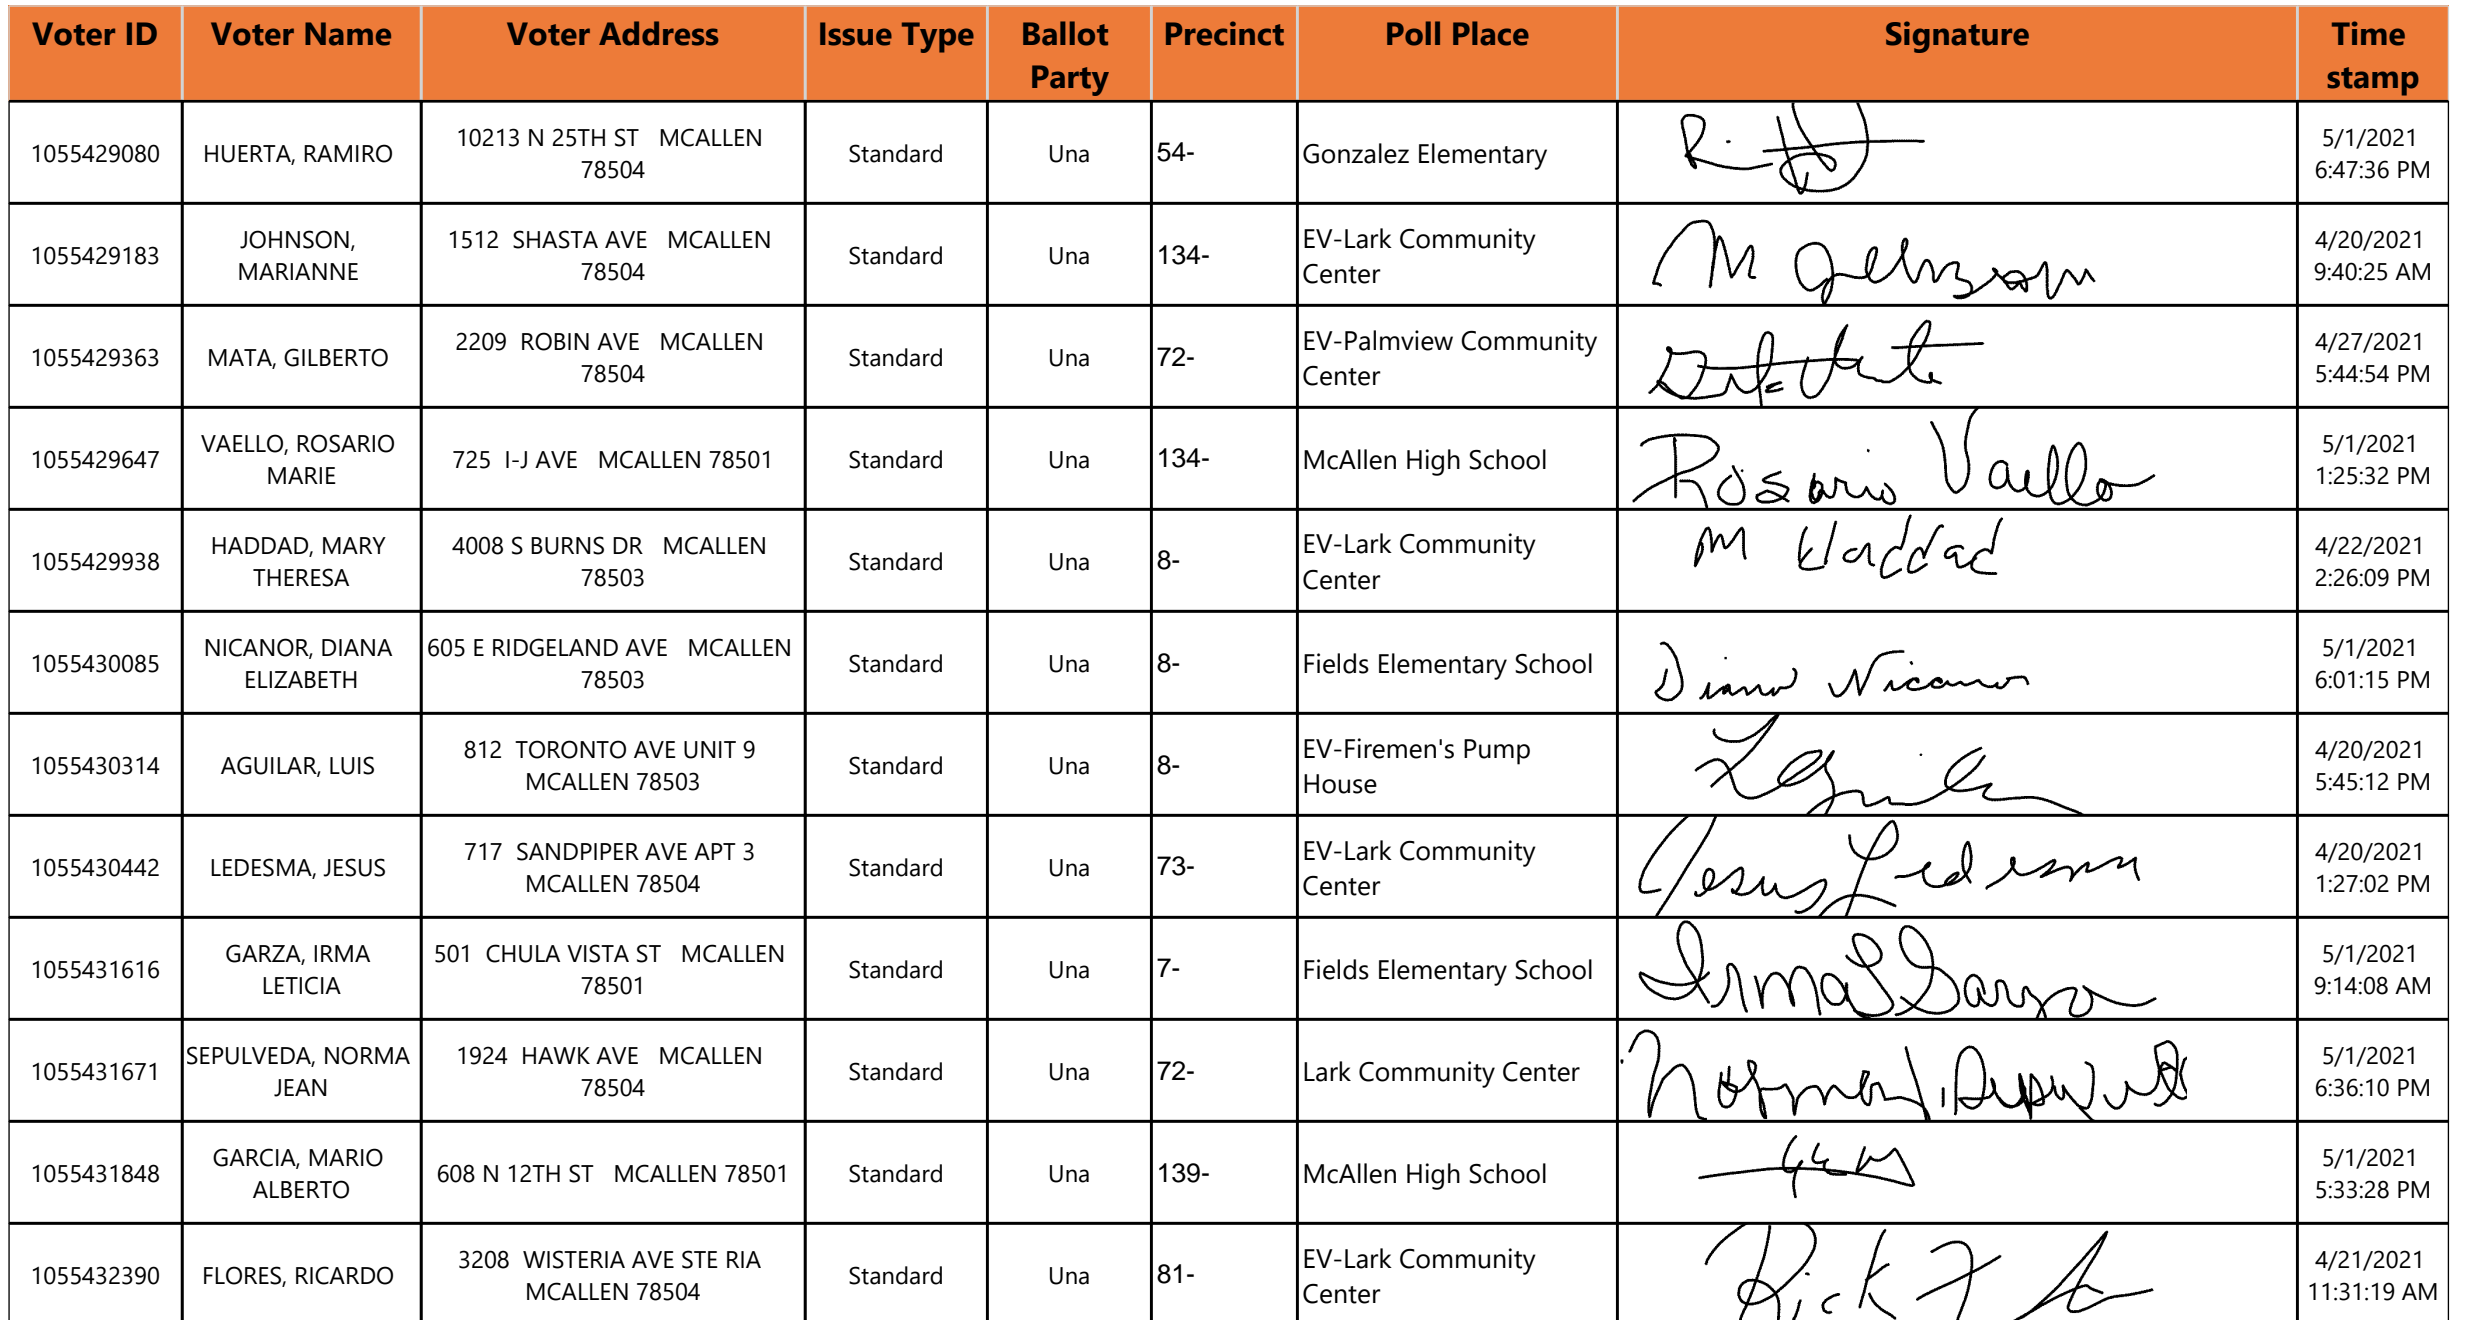 Voter ID Voter Name Voter Address Issue Type Ballot Party Precinct Poll Place Signature Time stamp
1055429080 HUERTA, RAMIRO 10213 N 25TH ST MCALLEN 78504 Standard Una 54- Gonzalez Elementary 5/1/2021 6:47:36 PM
1055429183 JOHNSON, MARIANNE 1512 SHASTA AVE MCALLEN 78504 Standard Una 134- EV-Lark Community Center M Johnson 4/20/2021 9:40:25 AM
1055429363 MATA, GILBERTO 2209 ROBIN AVE MCALLEN 78504 Standard Una 72- EV-Palmview Community Center 4/27/2021 5:44:54 PM
1055429647 VAELLO, ROSARIO MARIE 725 I-J AVE MCALLEN 78501 Standard Una 134- McAllen High School Rosario Vaello 5/1/2021 1:25:32 PM
1055429938 HADDAD, MARY THERESA 4008 S BURNS DR MCALLEN 78503 Standard Una 8- EV-Lark Community Center M Haddad 4/22/2021 2:26:09 PM
1055430085 NICANOR, DIANA ELIZABETH 605 E RIDGELAND AVE MCALLEN 78503 Standard Una 8- Fields Elementary School Diana Nicanor 5/1/2021 6:01:15 PM
1055430314 AGUILAR, LUIS 812 TORONTO AVE UNIT 9 MCALLEN 78503 Standard Una 8- EV-Firemen's Pump House 4/20/2021 5:45:12 PM
1055430442 LEDESMA, JESUS 717 SANDPIPER AVE APT 3 MCALLEN 78504 Standard Una 73- EV-Lark Community Center Jesus Ledesma 4/20/2021 1:27:02 PM
1055431616 GARZA, IRMA LETICIA 501 CHULA VISTA ST MCALLEN 78501 Standard Una 7- Fields Elementary School Irma L Garza 5/1/2021 9:14:08 AM
1055431671 SEPULVEDA, NORMA JEAN 1924 HAWK AVE MCALLEN 78504 Standard Una 72- Lark Community Center Norma J. Sepulveda 5/1/2021 6:36:10 PM
1055431848 GARCIA, MARIO ALBERTO 608 N 12TH ST MCALLEN 78501 Standard Una 139- McAllen High School 5/1/2021 5:33:28 PM
1055432390 FLORES, RICARDO 3208 WISTERIA AVE STE RIA MCALLEN 78504 Standard Una 81- EV-Lark Community Center Rick 4/21/2021 11:31:19 AM